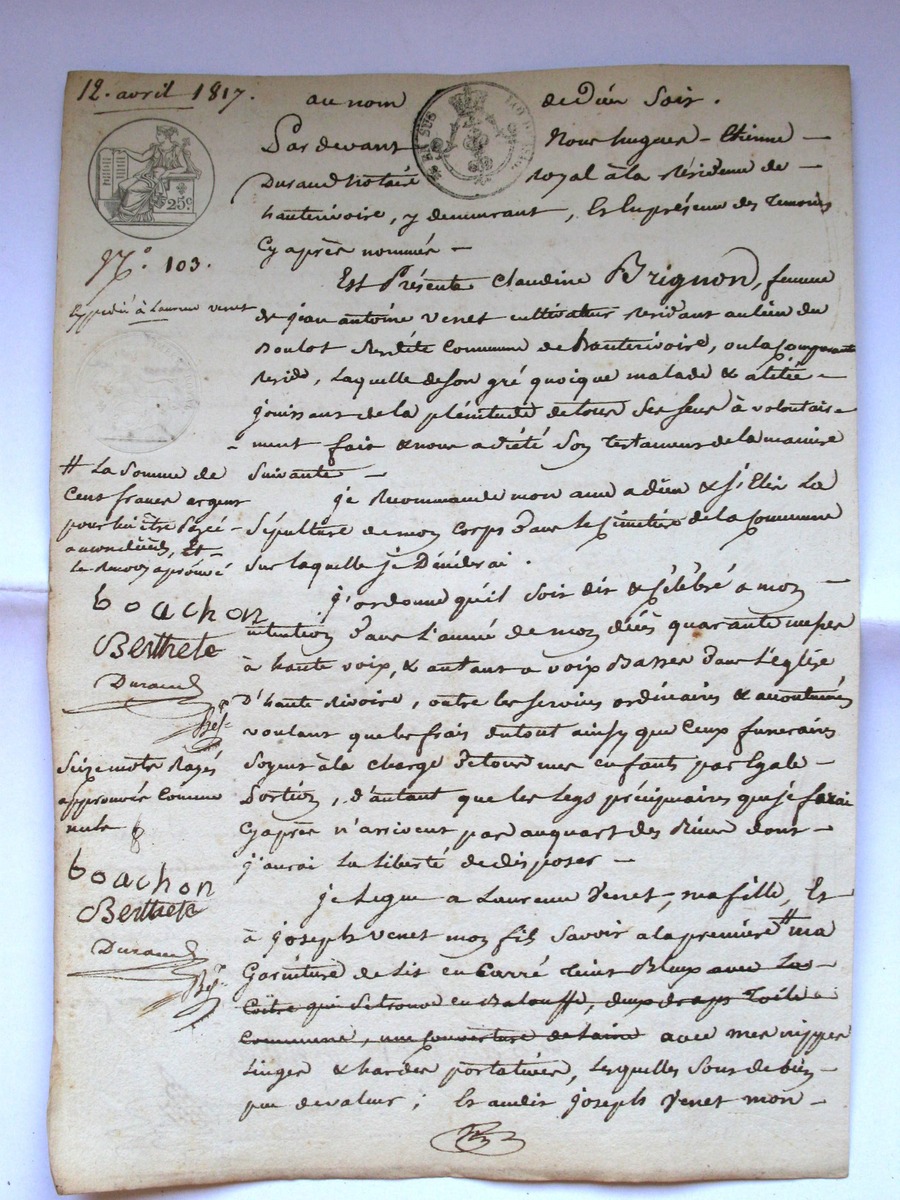 12. avril 1817.
au nom de Dieu soit.
Pardevant Nous hugues - Etienne -
Durand notaire royal à la résidence de -
hauterivoire, y demeurant, Et En présence des Temoins
Cy après nommés -
Est Présente Claudine Brignon, femme
de jean antoine Venet cultivateur résidant au lieu du
Boulot Susdite Commune de hauterivoire, ou la comparante
réside, Laquelle de son gré quoique malade & alitée -
jouissant de la plénitude de tous ses sens à volontaire
ment fait & nous a dicté son testament de la maniere
suivante -
je recommande mon ame a dieu & j'Elis La
sépulture de mon corps dans le cimetière de la Commune
sur laquelle je Décèderai.
j'ordonne qu'il soit dit & Célébré a mon
intention dans L'année de mon décès quarante messes
à haute voix, & autant a voix Basses dans L'église
D'haute rivoire, outre les services ordinaires & accoutumés
voulant que les frais du tout ainsy que Ceux funeraires
soyent à la charge de tous mes enfants par Egale -
Portion, d'autant que les Legs précipuaires que je ferai
Cy après n'arrivent pas au quart des Biens dont -
j'aurai La Liberté de disposer -
je Legue a Laurence Venet, ma fille, Et
à joseph Venet mon fils savoir a la première # ma
Garniture de Lit en Carré teint Bleux avec La -
Coitre qui se trouve en Balouffe, deux draps Toile -
Commune, une Couverture de Laine avec mes nippes
Linges & hardes portatives, Lesquelles sont de bien -
peu de valeur; Et audit joseph Venet mon -
25c.
N.° 103.
Expédié à Laurence venet
# La somme de
Cent francs argent
pour lui être Payé -
a mon décès, Et -
Le renvoy aprouvé
boachon
Berthete
Durand
Seize mots Rayés
approuvés Comme
nuls
boachon
Berthete
Durand